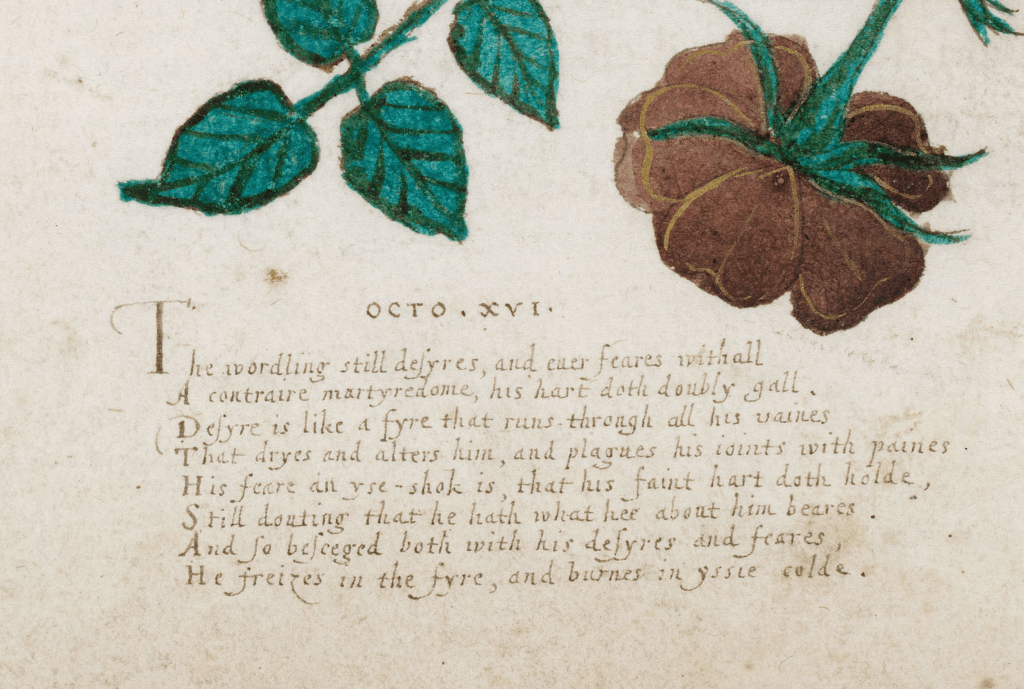 OCTO . XVI .
The wordling still deſyres, and euer feares withall
A contraire martyredome, his hart doth doubly gall .
Deſyre is like a fyre that runs through all his vaines
That dryes and alters him, and plagues his ioints with paines .
His feare an yse-shok is, that his faint hart doth holde,
Still douting that he hath what hee about him beares .
And ſo beſeeged both with his deſyres and feares,
He freizes in the fyre, and burnes in yssie colde .